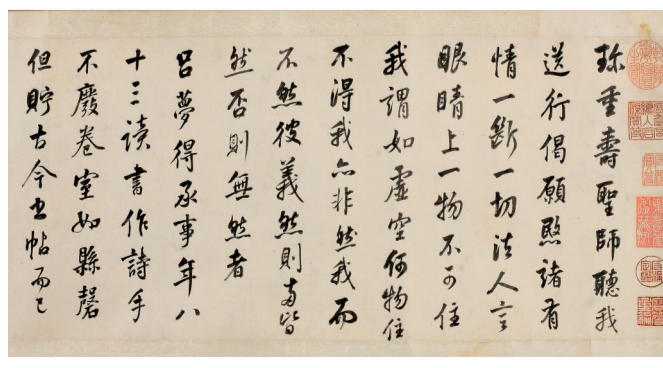 珍重壽聖師聽我
送行偈願愍諸有
情一斷一切法人言
眼睛上一物不可住
我謂如虛空何物住
不得我亦非然我而
不然彼義然則兩皆
然否則無然者
呂夢得承事年八
十三讀書作詩手
不廢卷室如縣磬
但貯古今書帖而已